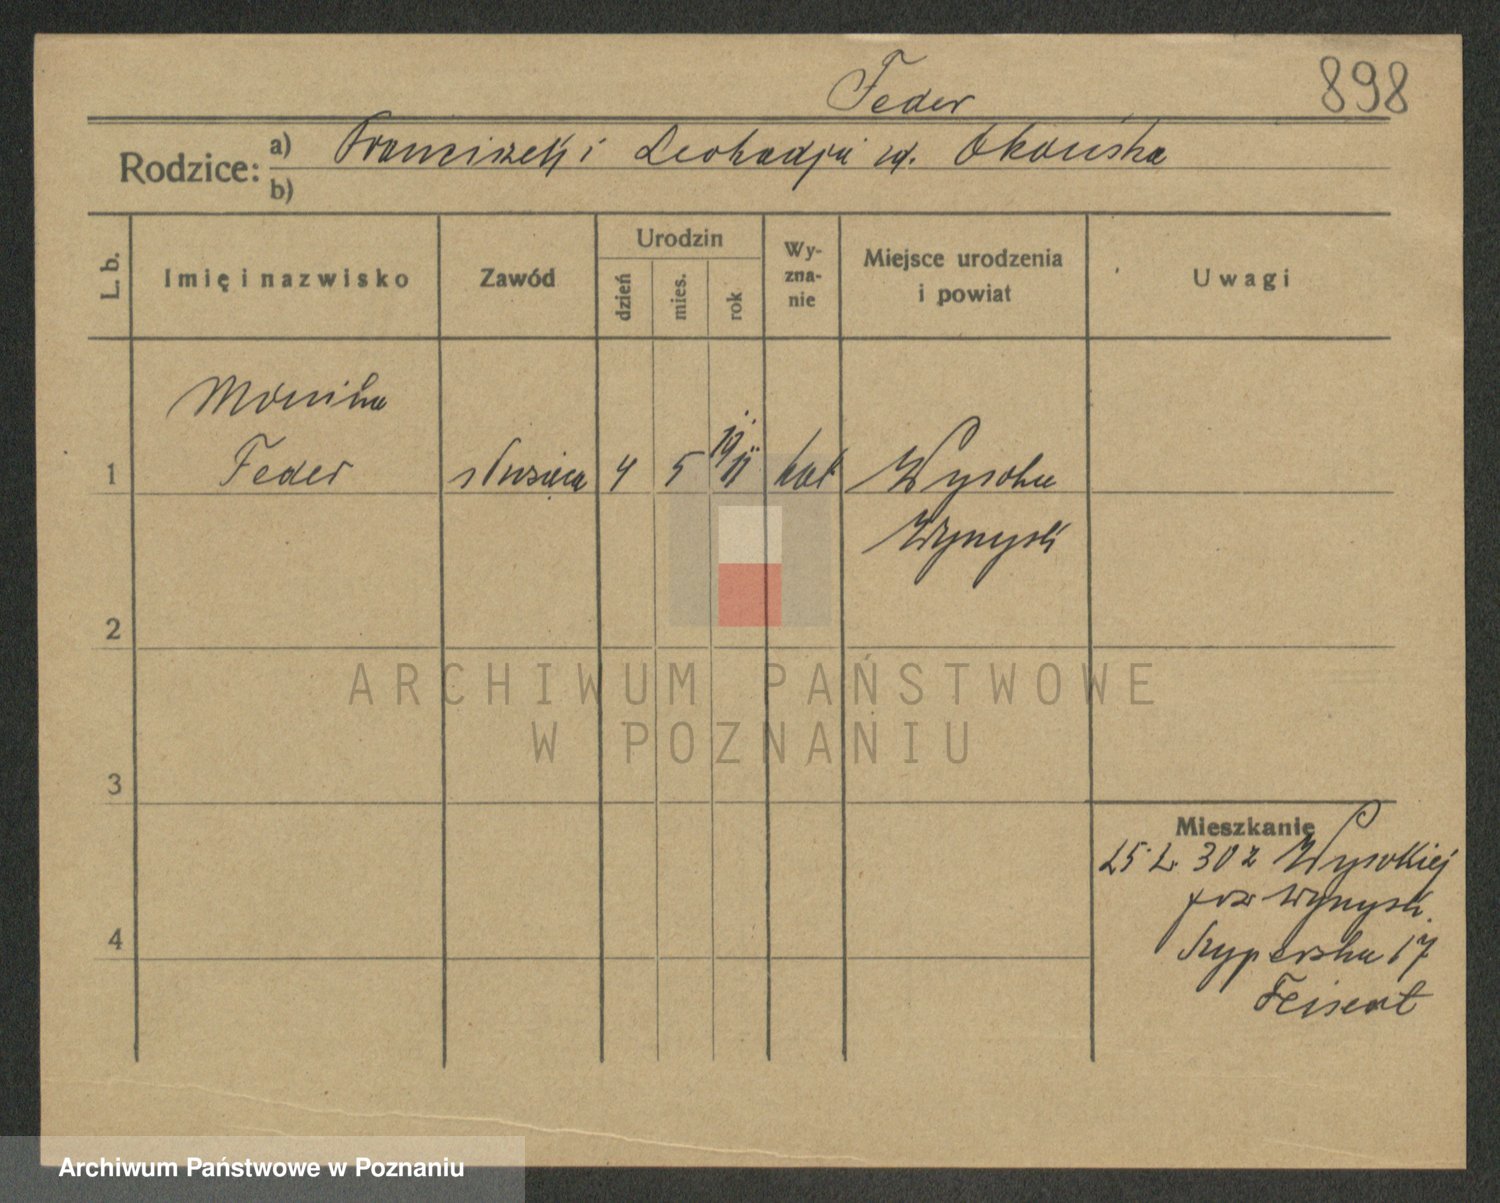 898
Feder
Rodzice:
a) Franciszek i Leokadja zd. Okońska
b)
L. b.
Imię i nazwisko
Zawód
Urodzin
dzień
mies.
rok
Wy-
zna-
nie
Miejsce urodzenia
i powiat
Uwagi
Monika
1 Feder służąca 4 5 19 11 kat Wysoka
Wyrzysk
2
ARCHIWUM PAŃSTWOWE
W POZNANIU
3
Mieszkanie
30 z Wysokiej
pow Wyrzysk.
4
17
Archiwum Państwowe w Poznaniu